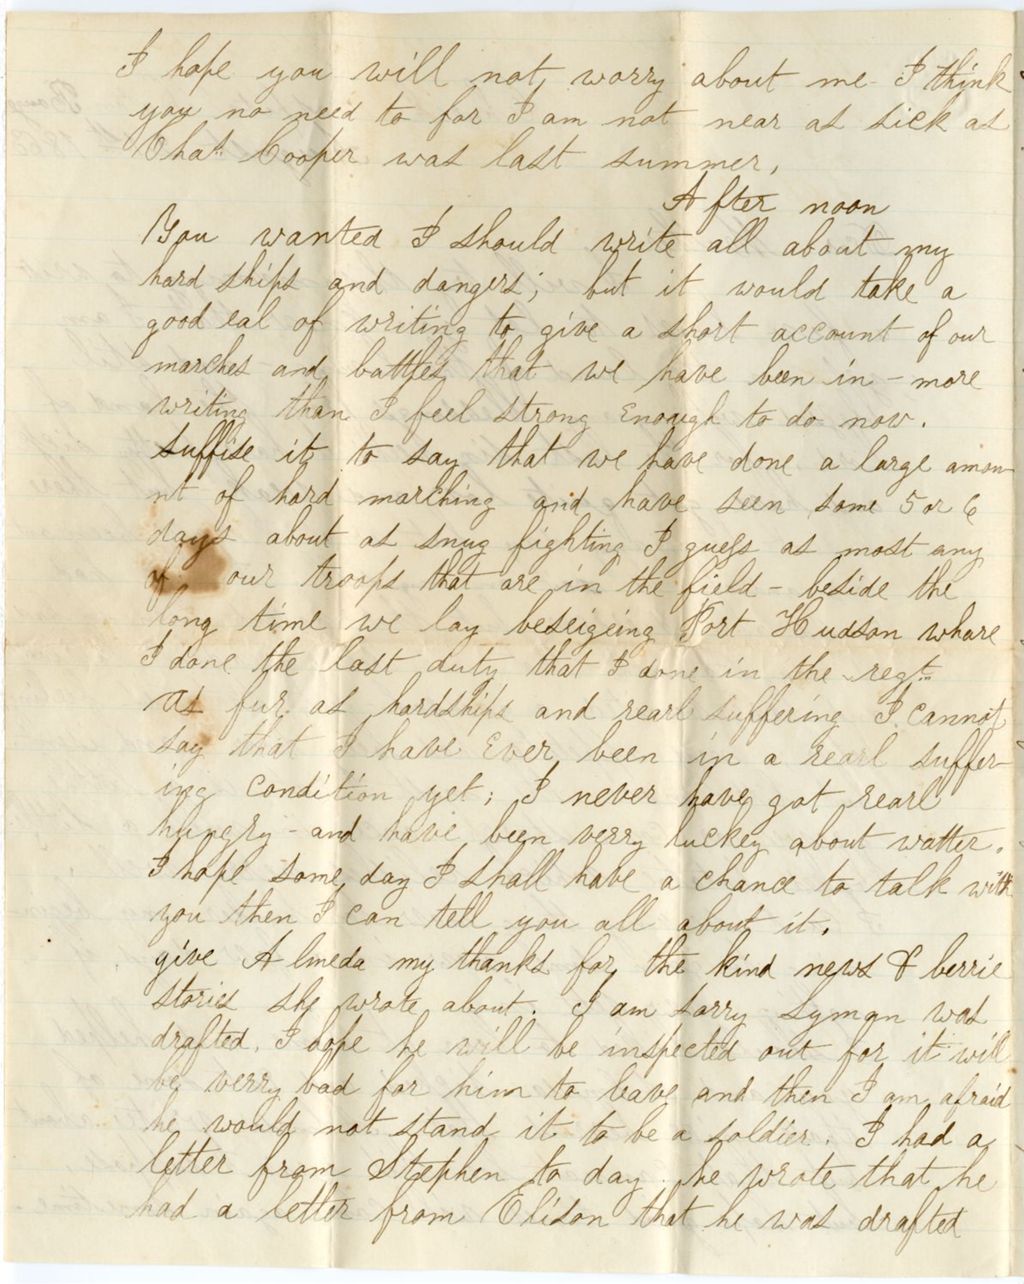 I hope you will not worry about me I think
you no need to for I am not near as sick as
Chas. Cooper was last summer,
After noon
You wanted I should write all about my
hard ships and dangers; but it would take a
good eal of writing to give a short account of our
marches and battles that we have been in – more
writing than I feel strong enough to do now.
suffise it to say that we have done a large amou
nt of hard marching and have seen some 5 or 6
days about as snug fighting I guess as most any
of our troops that are in the field – beside the
long time we lay beseigeing Port Hudson whare
I done the last duty that I done in the regt.
As fur as hardships and rearl suffering I cannot
say that I have ever been in a rearl suffer-
ing condition yet; I never have got rearl
hungry – and have been verry luckey about watter.
I hope some day I shall have a chance to talk with
you then I can tell you all about it.
give Almeda my thanks for the kind news & berrie
stories she wrote about. I am sorry Lyman was
drafted. I hope he will be inspected out for it will
be verry bad for him to leave and then I am afraid
he would not stand it to be a soldier. I had a
letter from Stephen to day. he wrote that he
had a letter from Elison that he was drafted